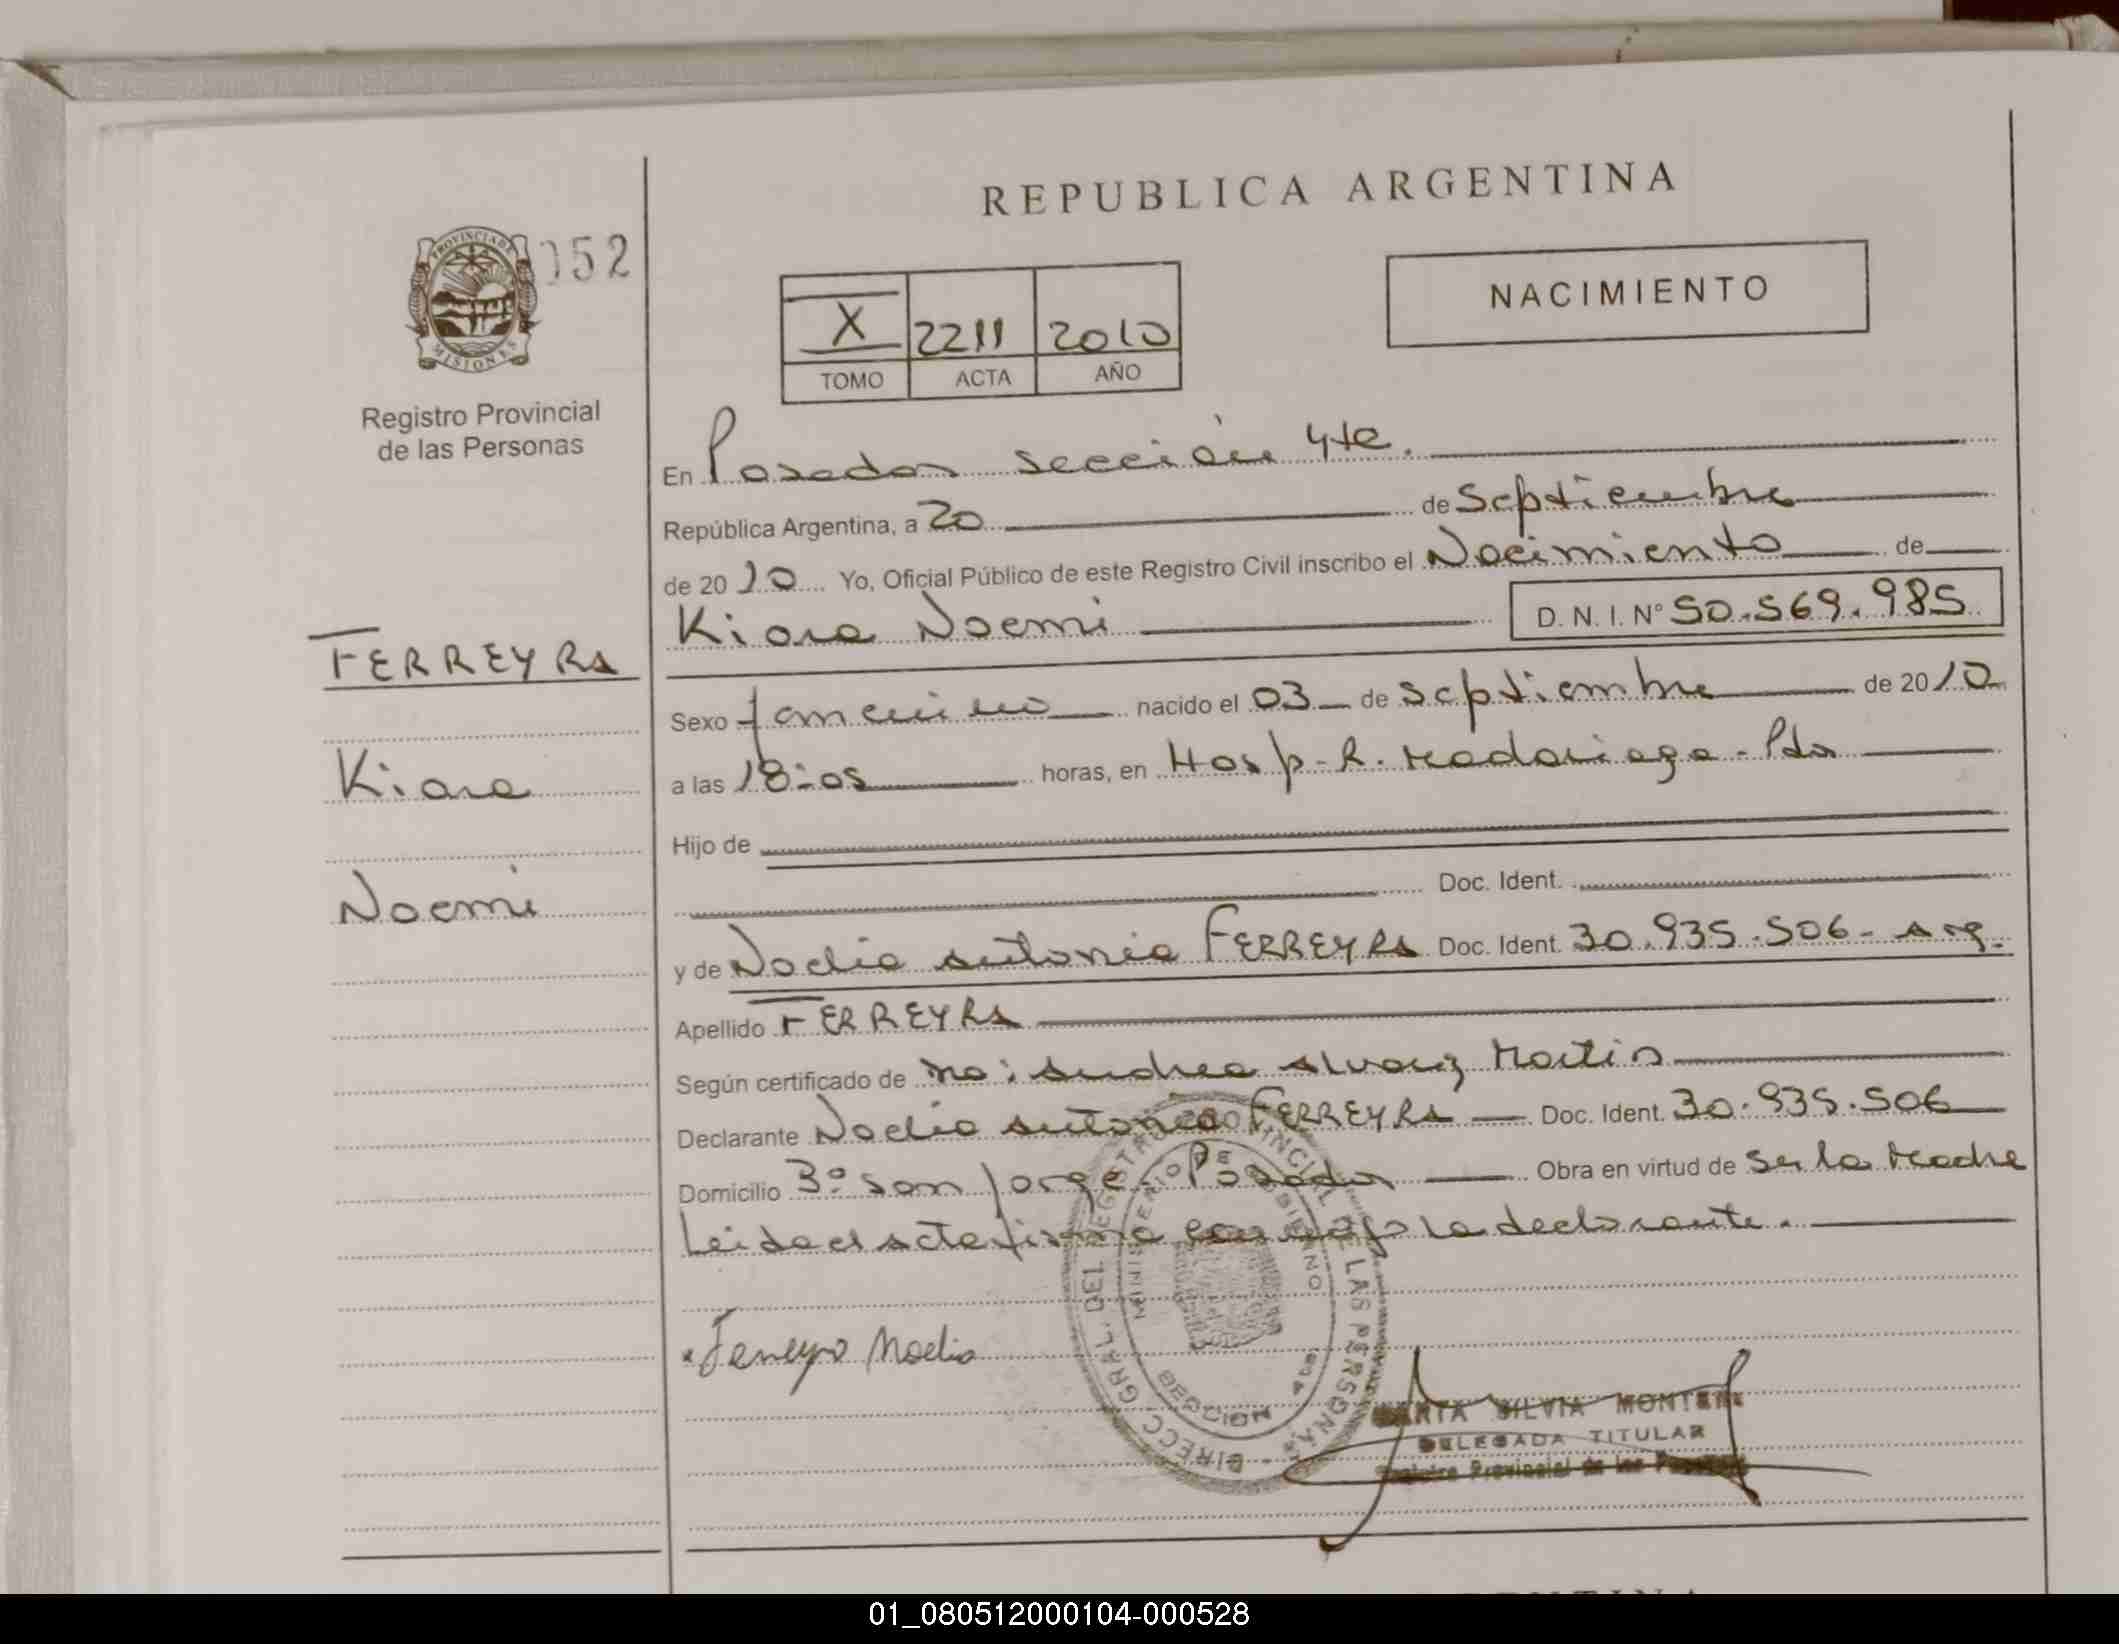 REPUBLICA ARGENTINA
PROVINCIA DE
MISIONES
052
Registro Provincial
de las Personas
NACIMIENTO
X 2211 2010
TOMO ACTA AÑO
En Posadas sección 4ta.
República Argentina, a 20 de Septiembre
de 2010 Yo, Oficial Público de este Registro Civil inscribo el Nacimiento de
Kiara Noemi D.N.I. Nº 50.569.985
FERREYRA
Kiara
Noemi
Sexo femenino nacido el 03 de septiembre de 2010
a las 18:05 horas, en Hosp. R. Madariaga - Pdas
Hijo de
Doc. Ident.
y de Nadia Antonia FERREYRA Doc. Ident. 30.935.506 - Arg.
Apellido FERREYRA
Según certificado de Andrea Alvarez Martin
Declarante Nadia Antonia FERREYRA Doc. Ident. 30.935.506
Domicilio 3º San Jorge - Posadas Obra en virtud de ser la Madre
Leida el Acta firma la declarante.
Ferreyra Nadia
DIRECC. GRAL. DEL REGISTRO PROVINCIAL DE LAS PERSONAS
MINISTERIO DE GOBIERNO
SECCION 4ta
MARTA SILVIA MONTERO
DELEGADA TITULAR
Registro Provincial de las Personas
01_080512000104-000528